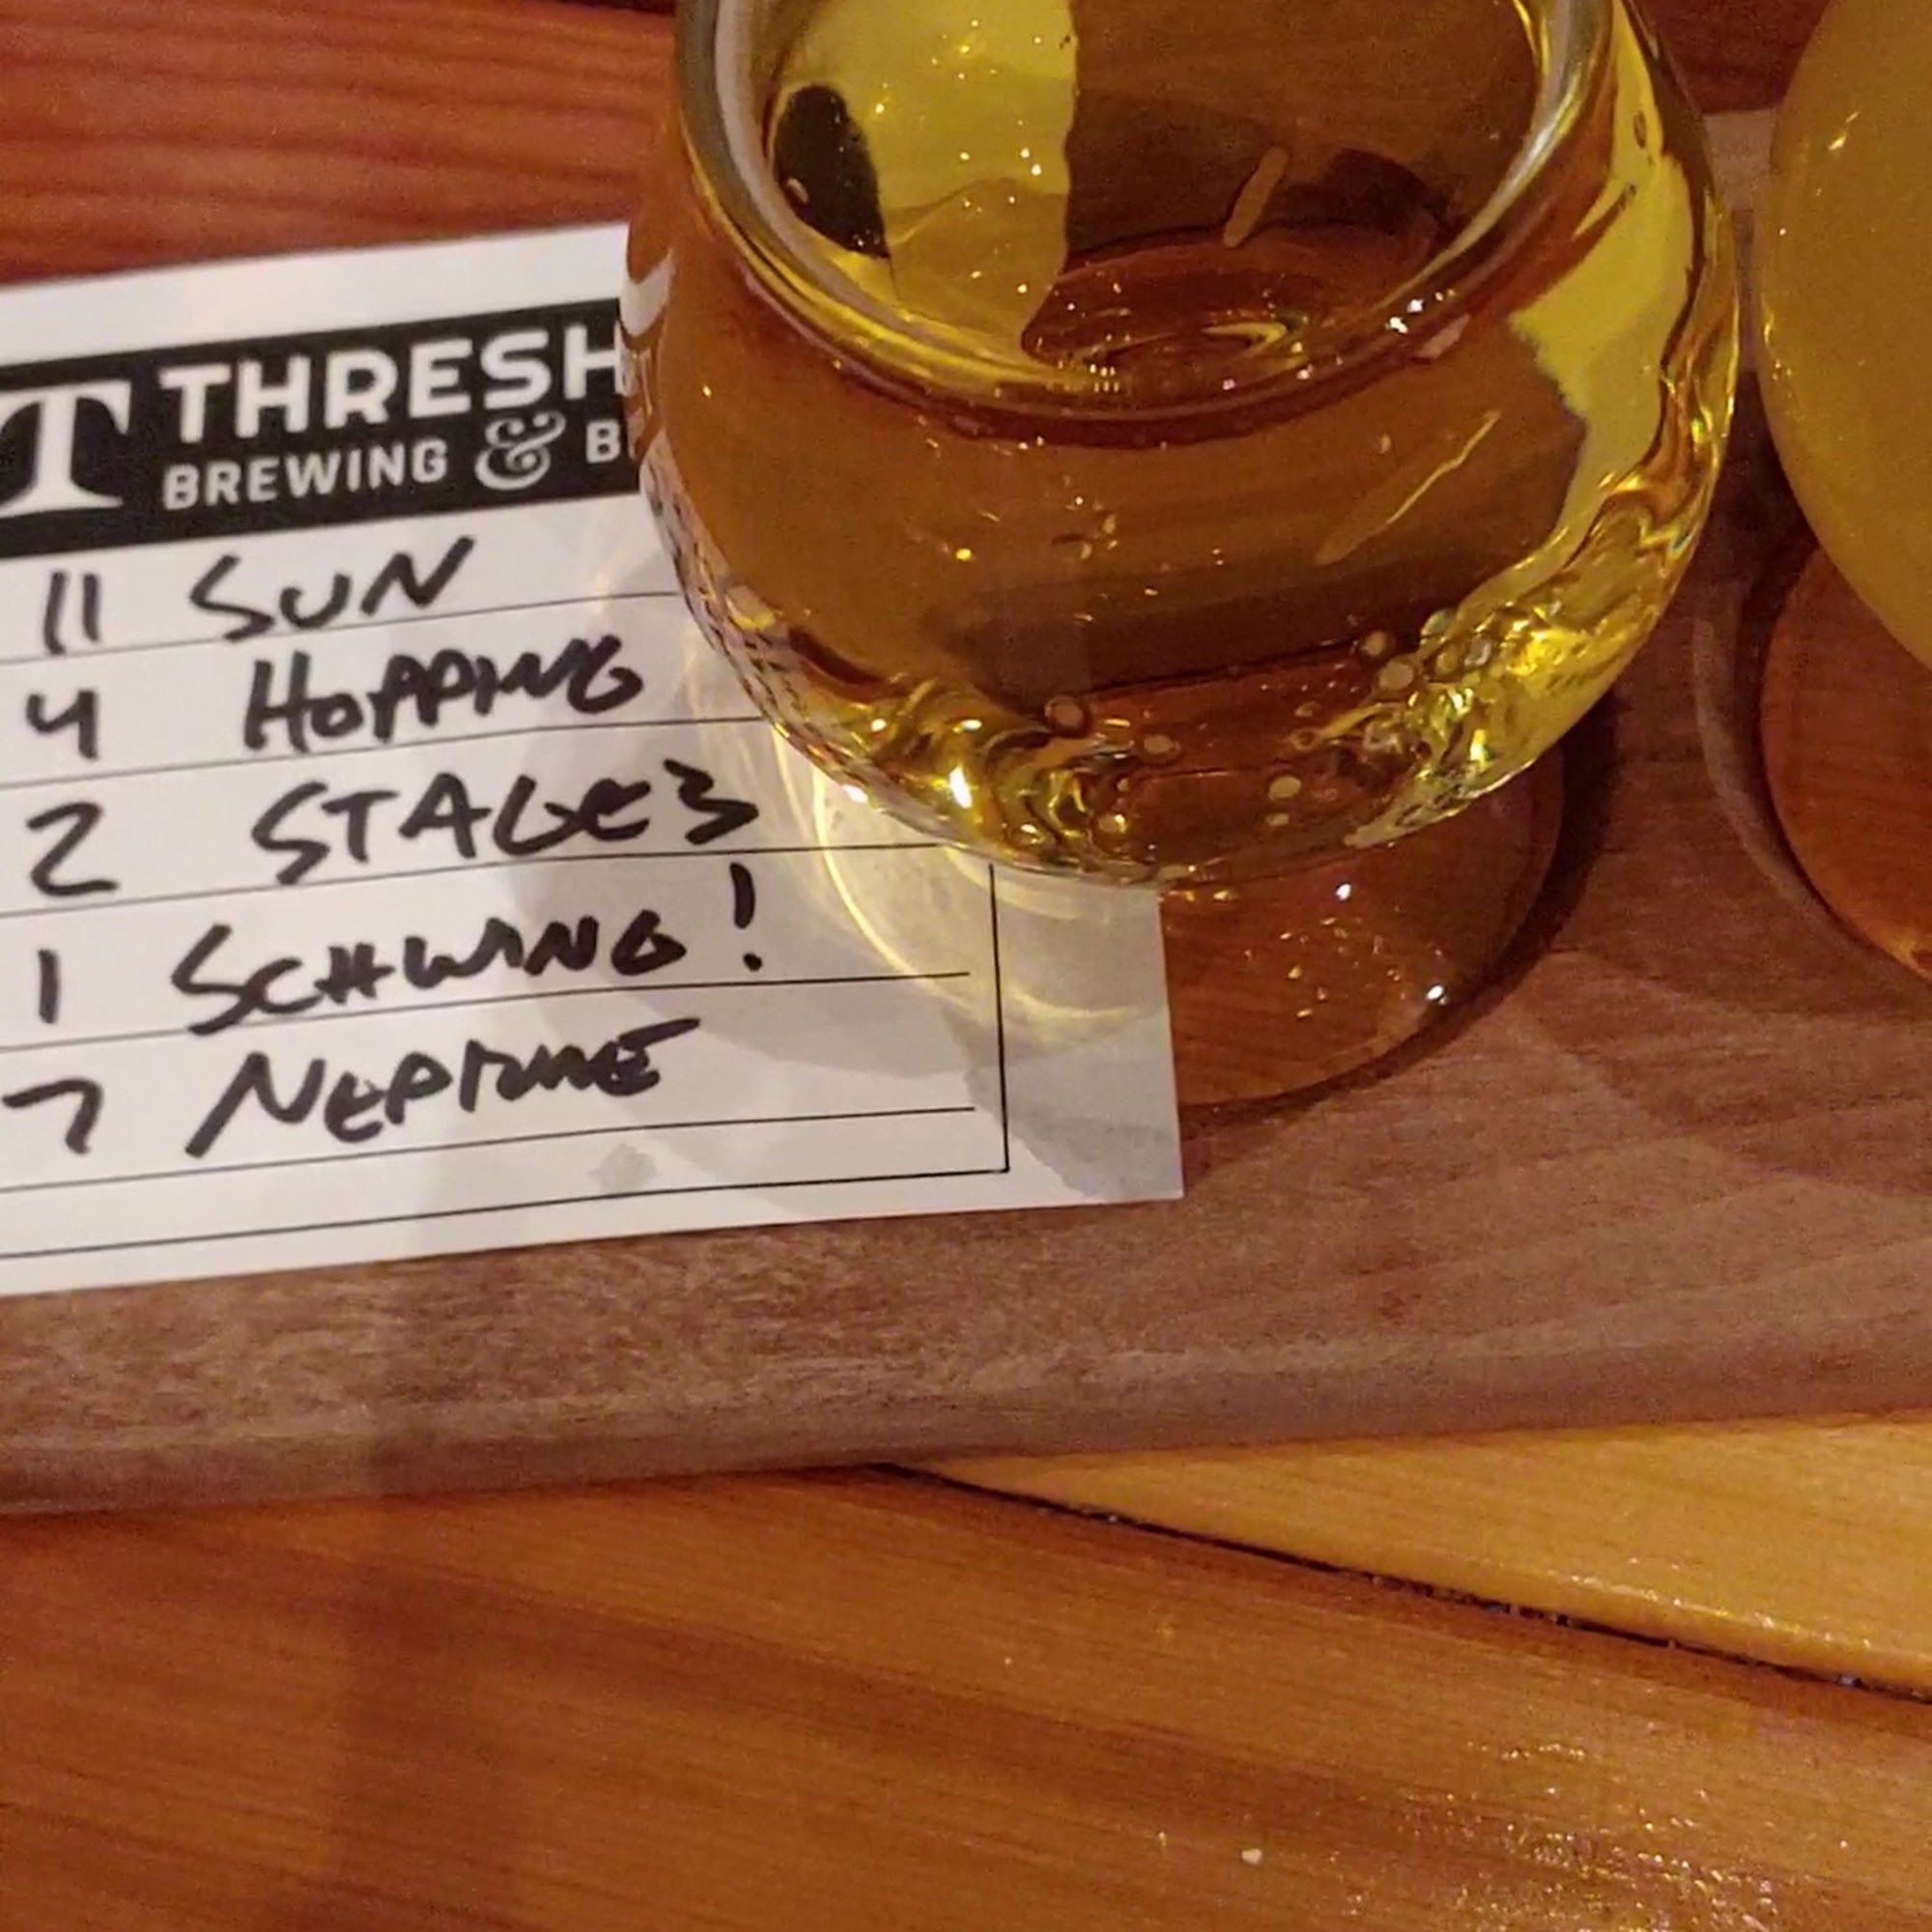 T THRESH
BREWING & B
11 SUN
4 HOPPING
2 STAGE3
1 SCHWING!
7 NEPTUNE